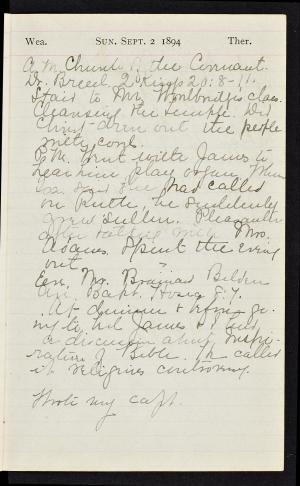 Wea. SUN. SEPT. 2 1894 Ther.
A.M. Church the Covenant.
Dr. Breed. 2 Kings 20:8-11.
Staid to Mr. class.
Cleansing the temple. Did
Christ drive out the people
with cords.
P.M. Went with James to
hear him play organ. When
I said she had called
on Ruth, he suddenly
grew sullen. Pleasanter
after talking with Mrs.
Adams. Spent the evening
out.
Eve, Mr. Brainard Belden
Bapt.
At dinner & before go-
ing to bed James & I had
a discussion about inspi-
ration of Bible. He called
it religious controversy.
Wrote my capt.